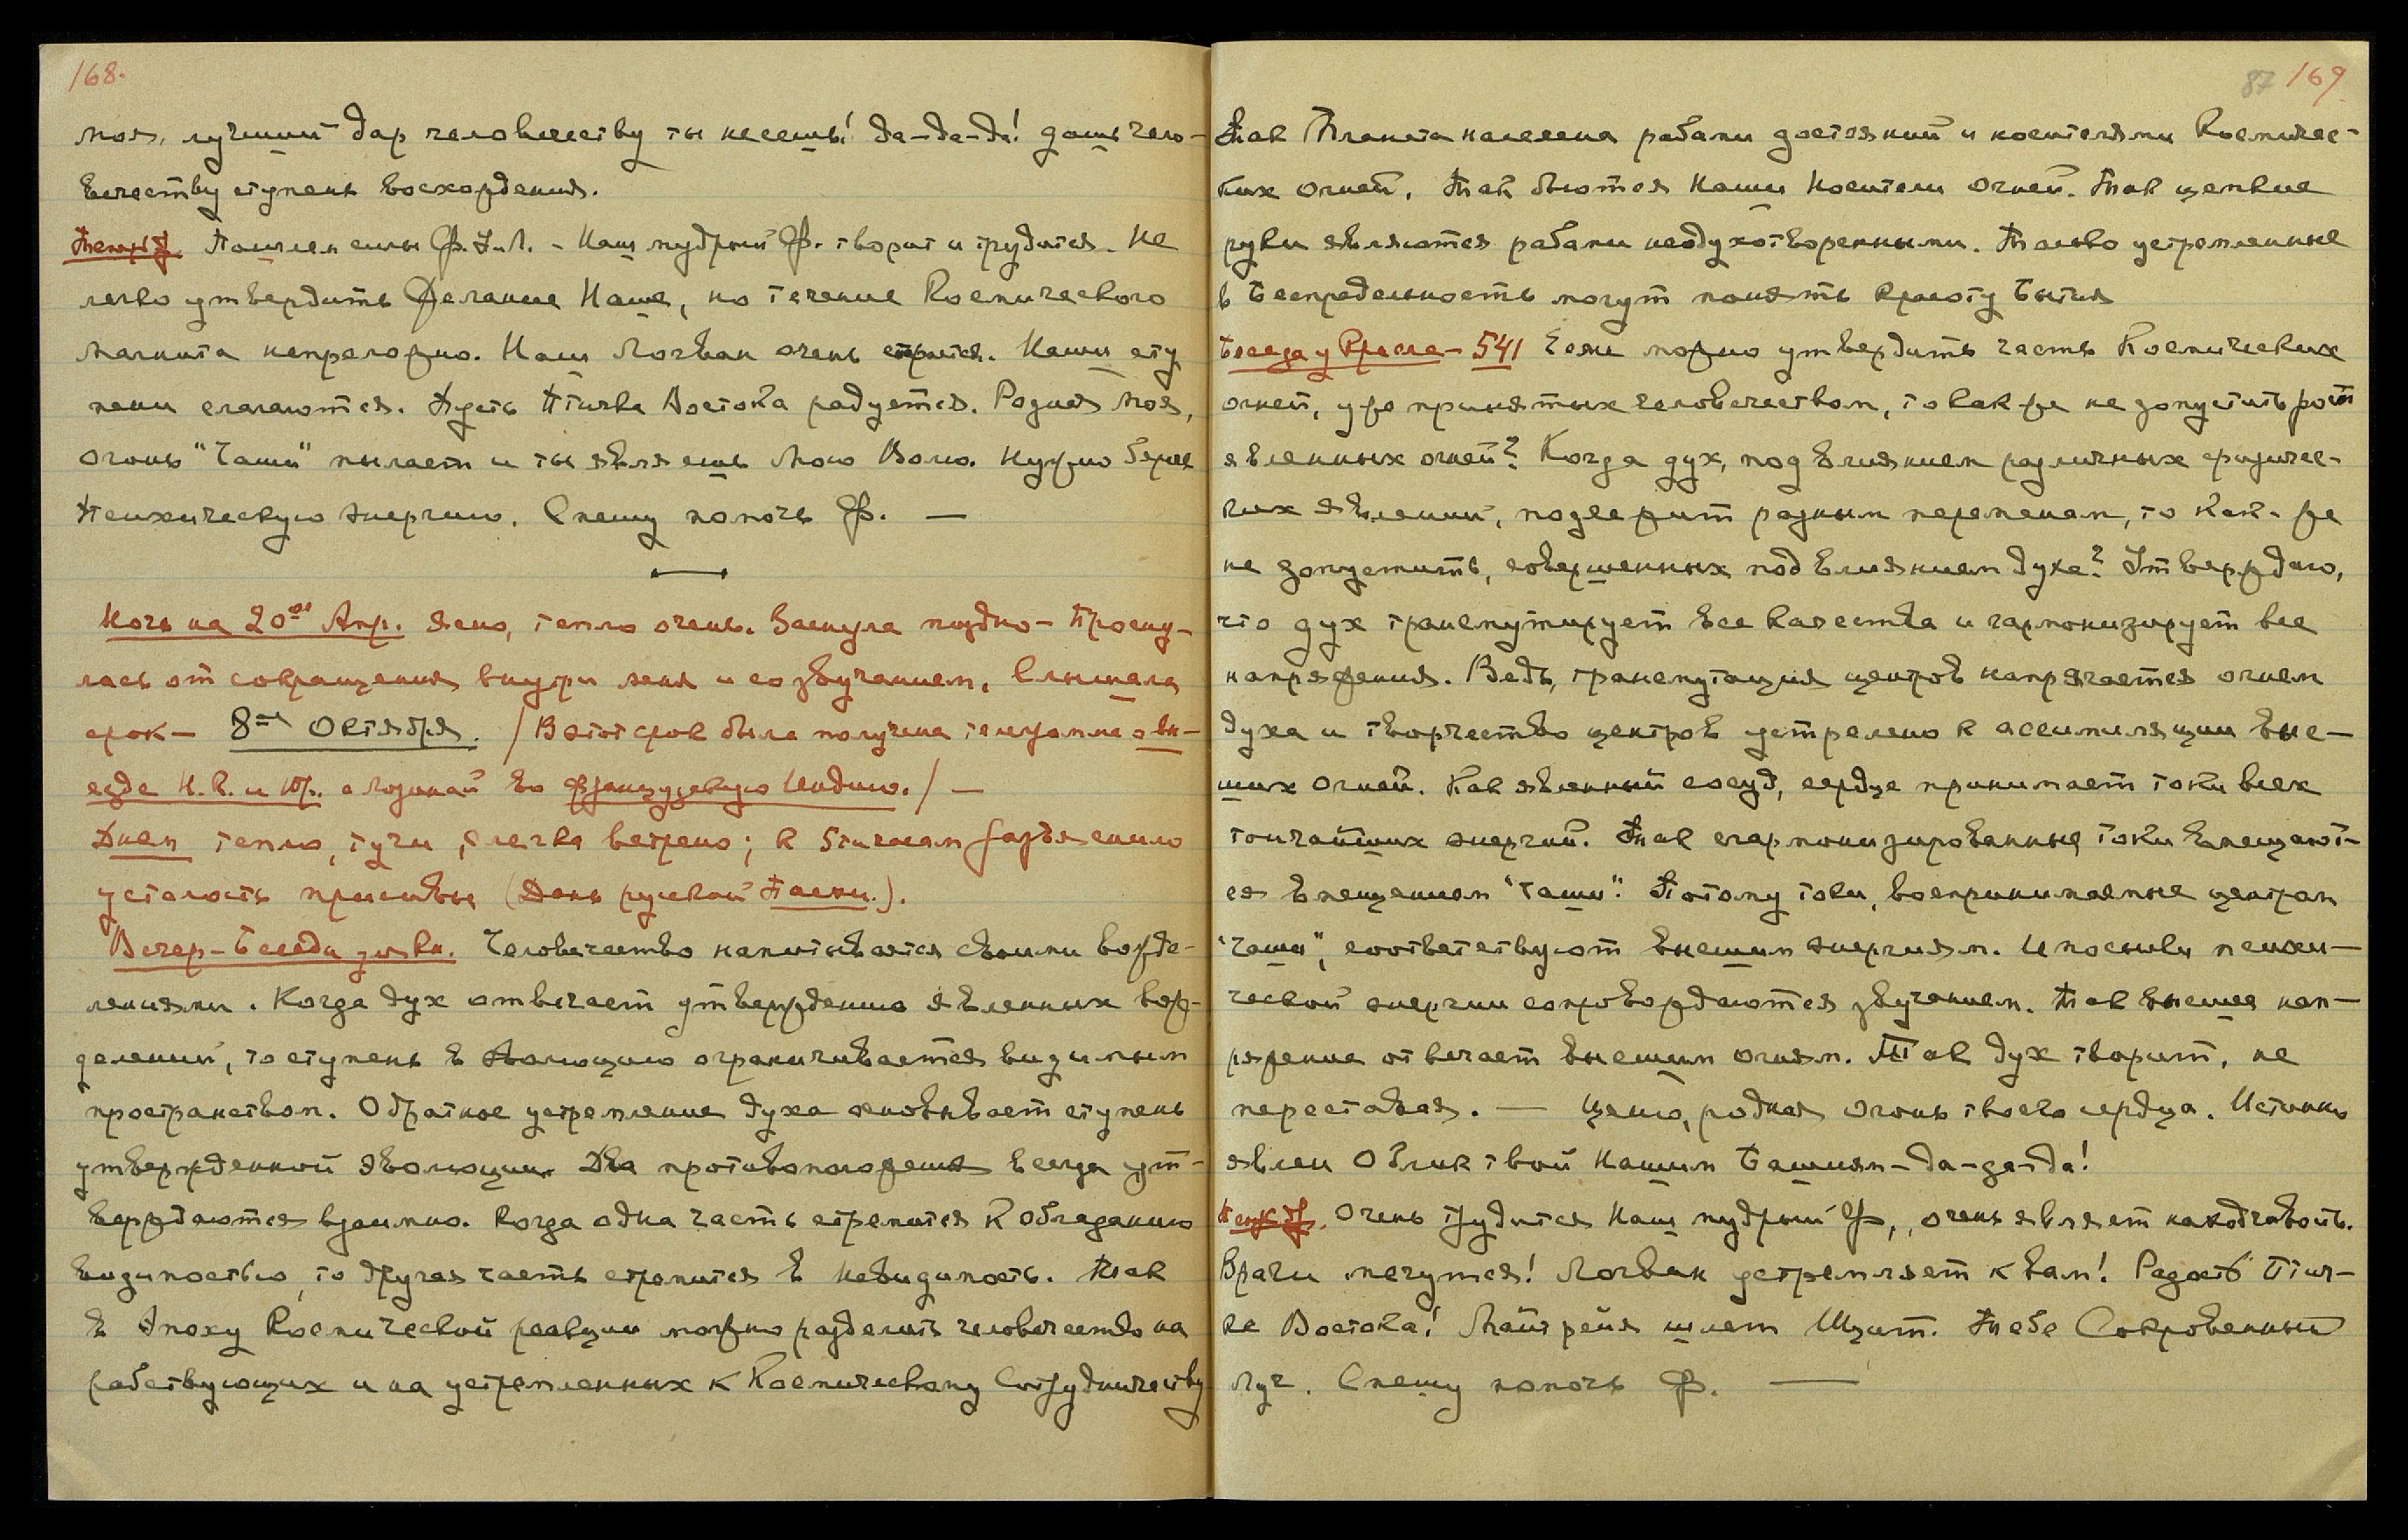 168.
моя, лучший дар человечеству ты несешь! Да-да-да! дашь чело-
вечеству ступень восхождения.
Пошлем силы Ф. У. Л. - Наш мудрый Ф. творит и трудится. Не
легко утвердить Делание Наше, но течение Космического
Магнита непреложно. Наш Логван очень строится. Наши сту
пени слагаются. Пусть Птичка Востока радуется. Родная Моя,
огонь "Чаши" пылает и ты являешь Мою Волю. Нужно беречь
психическую энергию. Спешу помочь Ф. —
Ночь на 20ое Апр. Ясно, тепло очень. Заснула поздно - Просну-
лась от сокращения внутри меня и созвучанием. Слышала
срок - 8ое Октября. / В этот срок была получена телеграмма о вы-
езде Н.К. и Юр. с Лозиной во французскую Индию. / —
Днем тепло, тучи, слегка ветрено; к 5ти часам разъяснило
усталость приливы (День русской Пасхи.).
Вечер - Беседы знаки. Человечество напитывается своими вожде-
лениями. Когда дух отвечает утверждению явленных вож-
делений, то ступень в эволюцию ограничивается видимым
пространством. Обратное устремление духа основывает ступень
утвержденной эволюции. Два противоположения всегда ут-
верждаются взаимно. Когда одна часть стремится к обладанию
видимостью, то другая часть стремится в Невидимость. Так
в Эпоху Космической реакции можно разделить человечество на
рабствующих и на устремленных к Космическому Сотрудничеству
87 169
Так Планета населена рабами достояний и носителями Космичес-
ких огней. Так бьются Наши Носители огней. Так цепкие
руки являются рабами неодухотворенными. Только устремленные
в Беспредельность могут понять Красоту Бытия
Беседа у Кресла - 541 Если можно утвердить часть Космических
огней, уже принятых человечеством, то как же не допустить рост
явленных огней? Когда дух, под влиянием различных физичес-
ких явлений, подлежит разным переменам, то как же
не допустить, совершенных под влиянием духа? Утверждаю,
что дух трансмутирует все качества и гармонизирует все
напряжения. Ведь, трансмутация центров напрягается огнем
духа и творчество центров устремлено к ассимиляции выс-
ших огней. Как явленный сосуд, сердце принимает токи всех
тончайших энергий. Так сгармонизированные токи вмещают-
ся вмещением "Чаши". Потому токи, воспринимаемые центром
"Чаши", соответствуют высшим энергиям. И посылки психи-
ческой энергии сопровождаются звучанием. Так высшее нап-
ряжение отвечает высшим огням. Так дух творит, не
переставая. — Ценю, родная огонь твоего сердца. Истинно
явлен Облик твой Нашим Башням - да-да-да!
Очень трудится Наш мудрый Ф, очень являет находчивость.
Враги мечутся! Логван устремляет к вам! Радость Птич-
ке Востока! Майтрейя шлет Щит. Тебе Сокровенный
Луч. Спешу помочь Ф. —